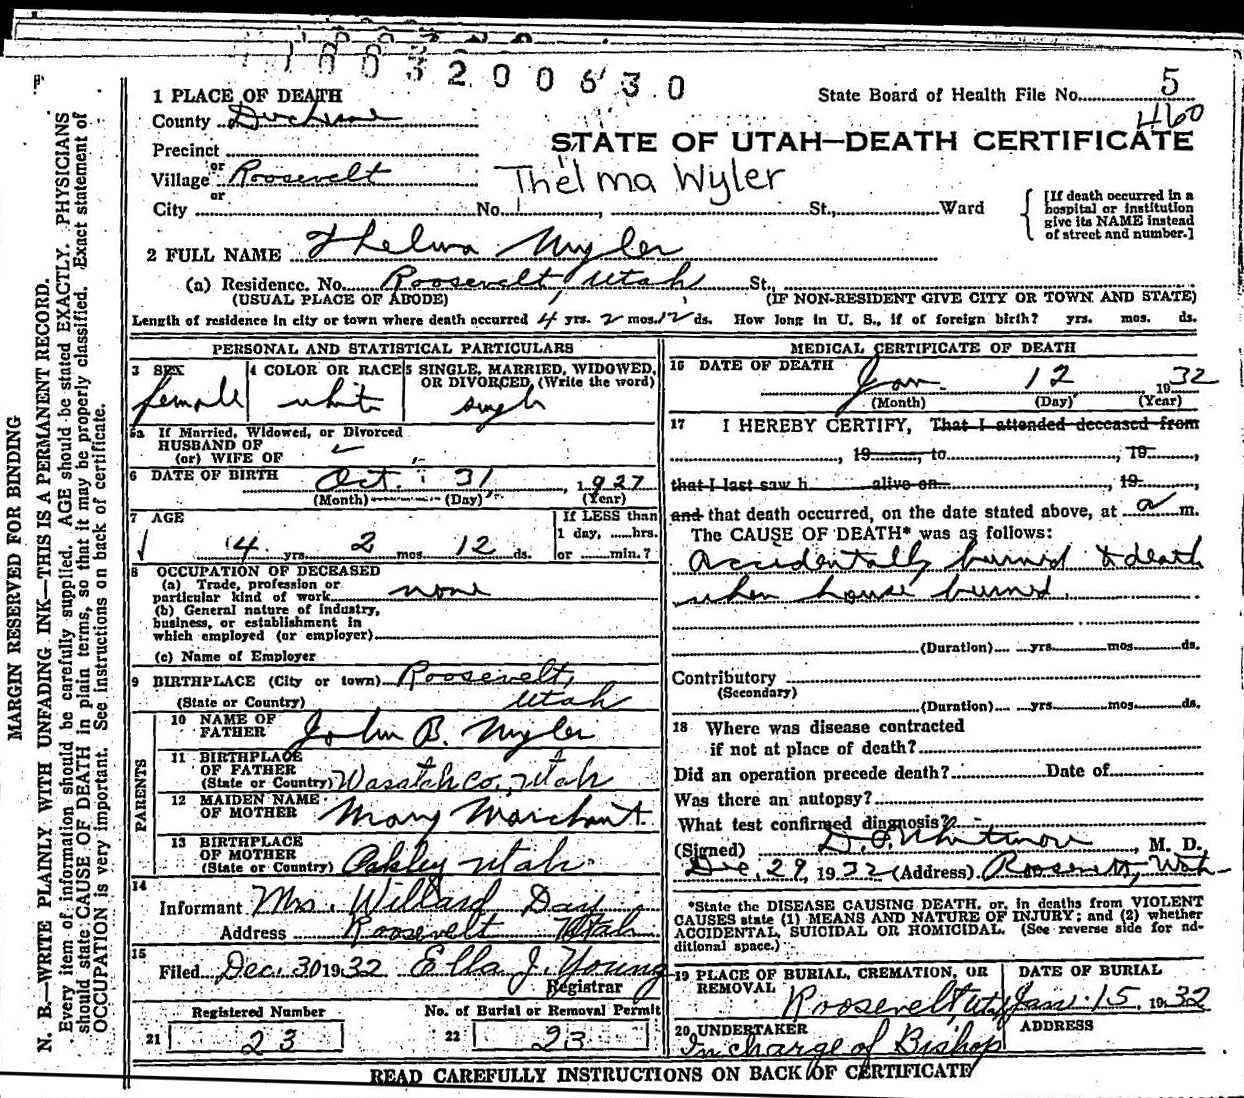 1003200630
1 PLACE OF DEATH
State Board of Health File No. 5
460
County Duchesne
STATE OF UTAH—DEATH CERTIFICATE
Precinct
or
Village Roosevelt
Thelma Wyler
or
City No. , St., Ward
[If death occurred in a hospital or institution give its NAME instead of street and number.]
2 FULL NAME Thelma Wyler
(a) Residence. No. Roosevelt, Utah St.,
(USUAL PLACE OF ABODE) (IF NON-RESIDENT GIVE CITY OR TOWN AND STATE)
Length of residence in city or town where death occurred 4 yrs. 2 mos. 12 ds. How long in U. S., if of foreign birth? yrs. mos. ds.
PERSONAL AND STATISTICAL PARTICULARS
3 SEX female
4 COLOR OR RACE white
5 SINGLE, MARRIED, WIDOWED, OR DIVORCED, (Write the word) single
5a If Married, Widowed, or Divorced
HUSBAND OF
(or) WIFE OF
6 DATE OF BIRTH Oct. 31, 1927
(Month) (Day) (Year)
7 AGE
4 yrs. 2 mos. 12 ds.
If LESS than
1 day, hrs.
or min.?
8 OCCUPATION OF DECEASED
(a) Trade, profession or
particular kind of work none
(b) General nature of industry,
business, or establishment in
which employed (or employer)
(c) Name of Employer
9 BIRTHPLACE (City or town) Roosevelt,
(State or Country) Utah
PARENTS
10 NAME OF
FATHER John B. Wyler
11 BIRTHPLACE
OF FATHER
(State or Country) Wasatch Co., Utah
12 MAIDEN NAME
OF MOTHER Mary Marchant
13 BIRTHPLACE
OF MOTHER
(State or Country) Oakley Utah
14
Informant Mrs. Willard Day
Address Roosevelt Utah
15
Filed Dec. 30 1932 Ella J. Young
Registrar
Registered Number
21 23
No. of Burial or Removal Permit
22 23
MEDICAL CERTIFICATE OF DEATH
16 DATE OF DEATH
Jan. 12 1932
(Month) (Day) (Year)
17 I HEREBY CERTIFY, That I attended deceased from
, 19 , to , 19 ,
that I last saw h alive on , 19 ,
and that death occurred, on the date stated above, at a m.
The CAUSE OF DEATH* was as follows:
Accidentally burned to death
when house burned.
(Duration) yrs. mos. ds.
Contributory
(Secondary)
(Duration) yrs. mos. ds.
18 Where was disease contracted
if not at place of death?
Did an operation precede death? Date of
Was there an autopsy?
What test confirmed diagnosis?
(Signed) Whitmore, M. D.
Dec. 29, 1932 (Address) Roosevelt, Utah
*State the DISEASE CAUSING DEATH, or, in deaths from VIOLENT
CAUSES state (1) MEANS AND NATURE OF INJURY; and (2) whether
ACCIDENTAL, SUICIDAL OR HOMICIDAL. (See reverse side for ad-
ditional space.)
19 PLACE OF BURIAL, CREMATION, OR
REMOVAL
Roosevelt, Utah
DATE OF BURIAL
Jan. 15, 1932
20 UNDERTAKER
In charge of Bishop
ADDRESS
READ CAREFULLY INSTRUCTIONS ON BACK OF CERTIFICATE
MARGIN RESERVED FOR BINDING
N. B.—WRITE PLAINLY WITH UNFADING INK—THIS IS A PERMANENT RECORD.
Every item of information should be carefully supplied. AGE should be stated EXACTLY. PHYSICIANS
should state CAUSE OF DEATH in plain terms, so that it may be properly classified. Exact statement of
OCCUPATION is very important. See instructions on back of certificate.